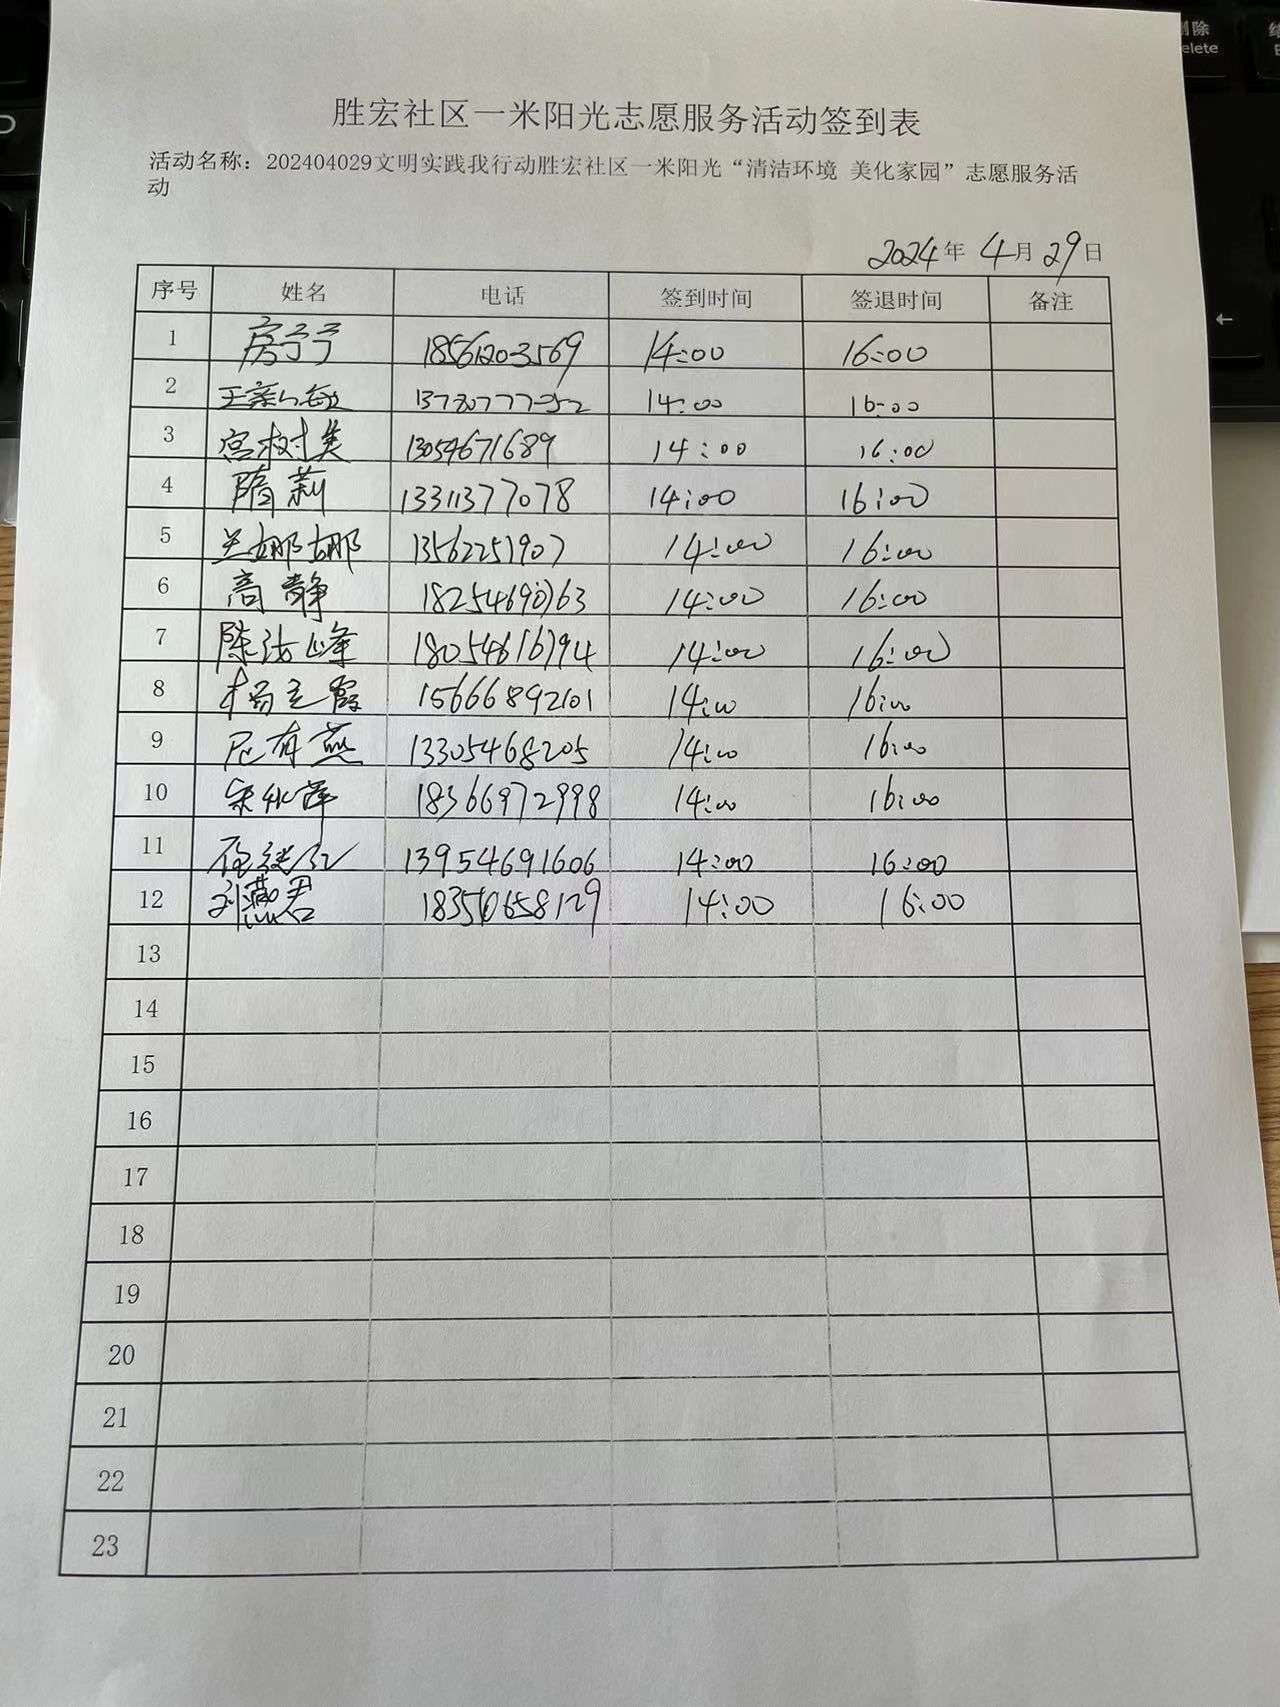 删除
Delete
胜宏社区一米阳光志愿服务活动签到表
活动名称：202404029文明实践我行动胜宏社区一米阳光“清洁环境 美化家园”志愿服务活
动
2024年 4月29日
序号 姓名 电话 签到时间 签退时间 备注
1 房子子 18561203569 14:00 16:00
2 14:00 16:00
3 宫树类 13054671689 14:00 16:00
4 隋莉 13311377078 14:00 16:00
5 娜娜 13562251907 14:00 16:00
6 高静 14:00 16:00
7 陈 峰 18054616794 14:00 16:00
8 杨立霞 15666892101 14:00 16:00
9 有燕 13305468205 14:00 16:00
10 宋 萍 18366972998 14:00 16:00
11 13954691606 14:00 16:00
12 刘燕君 14:00 16:00
13
14
15
16
17
18
19
20
21
22
23